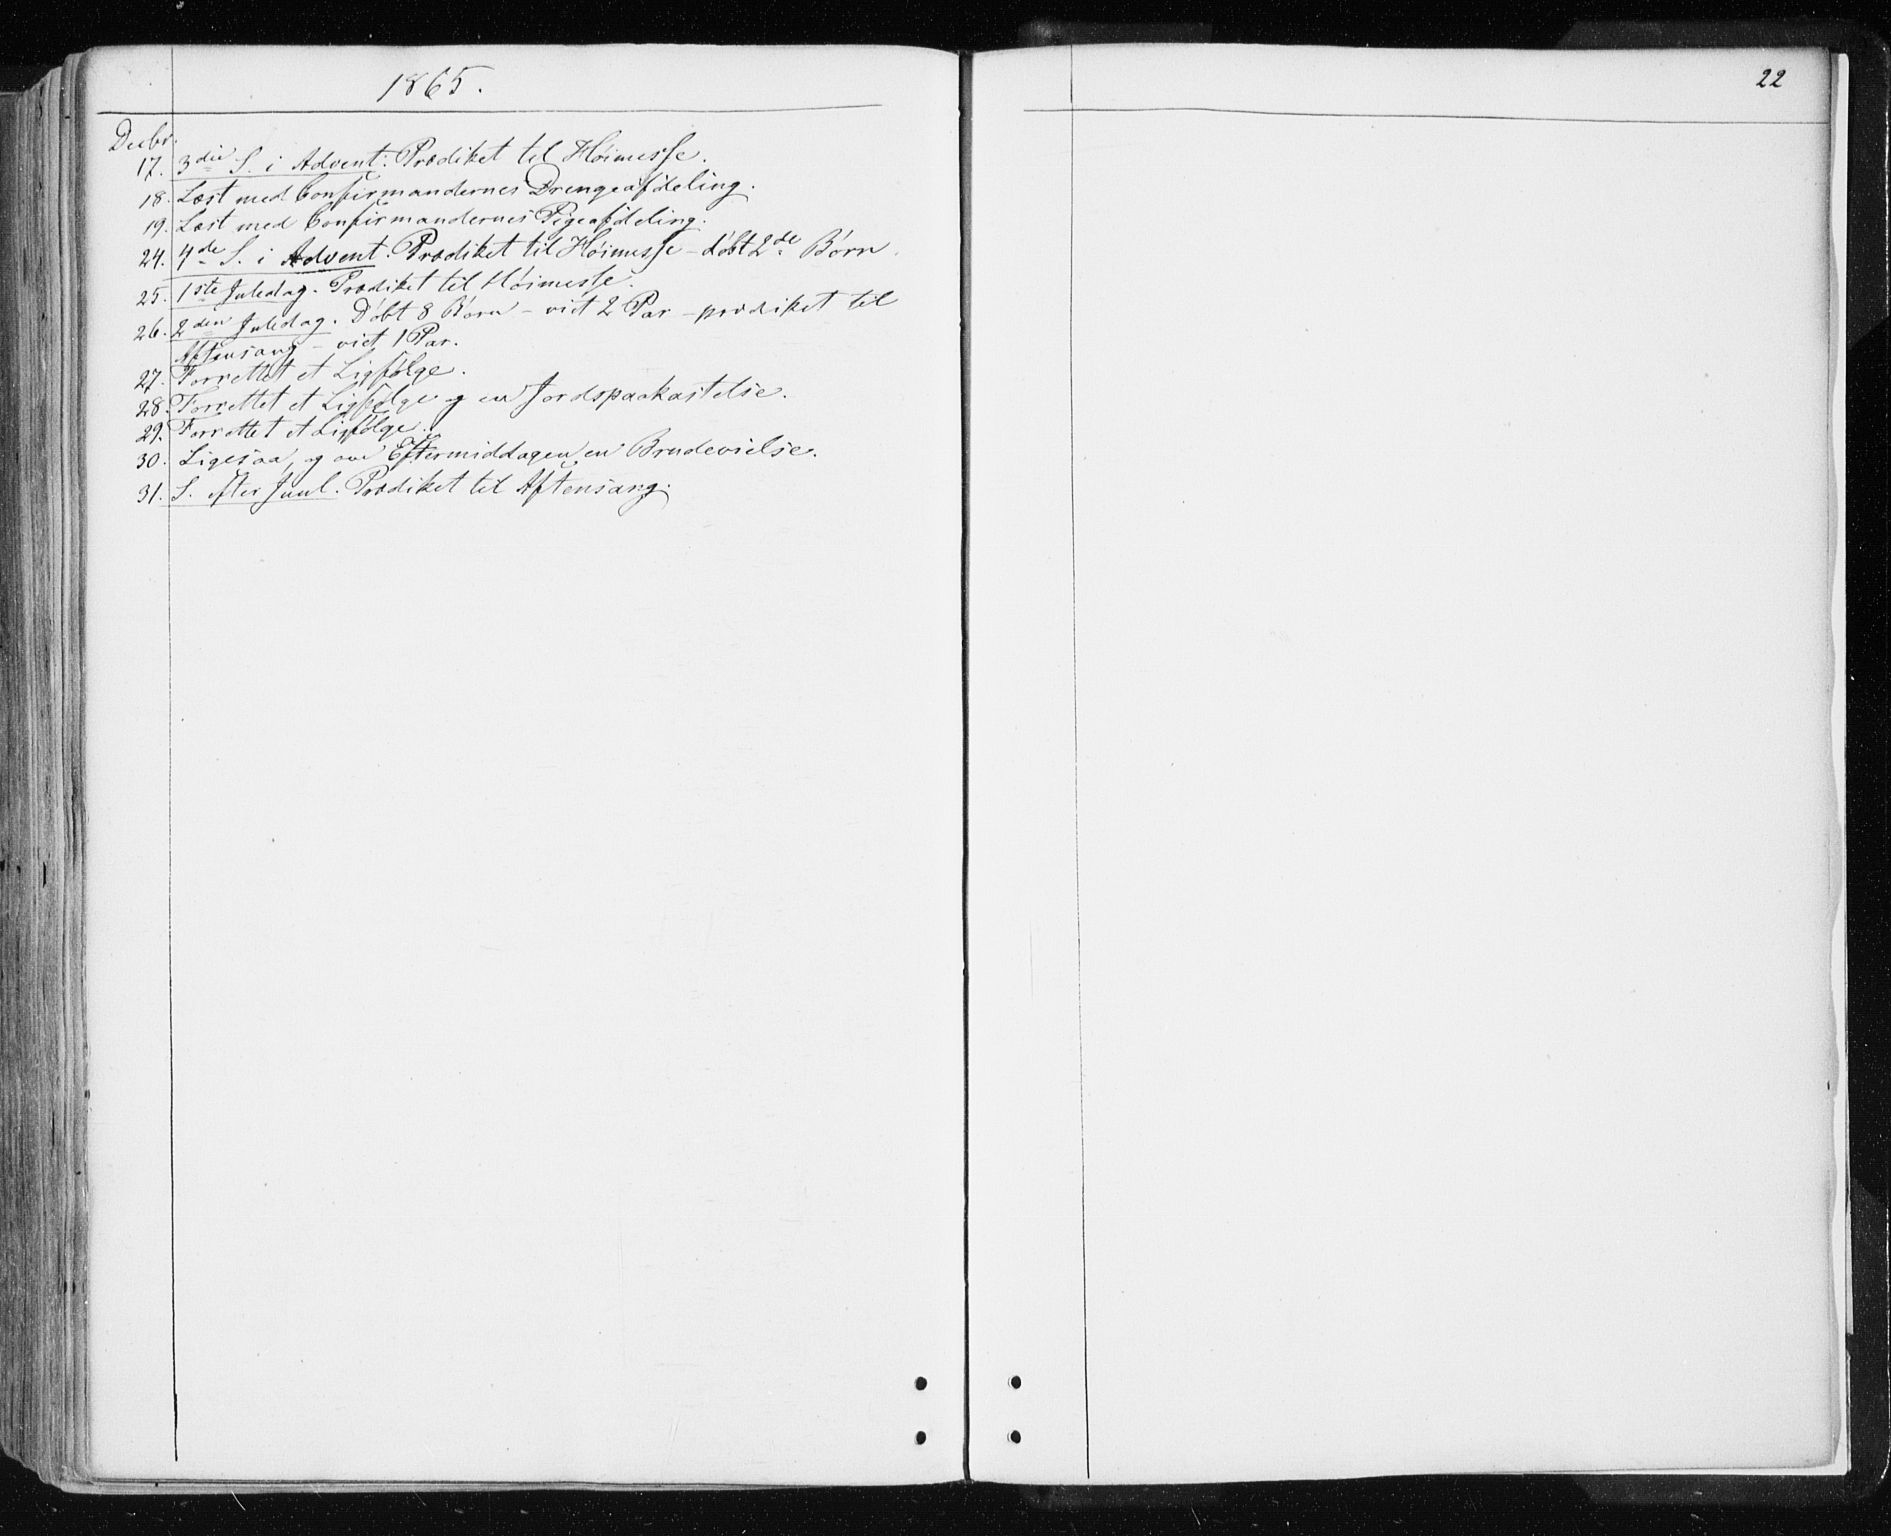 1865.
22
Decbr.
17. 3die S. i Advent. Prædiket til Høimesse.
18. Læst med Confirmandernes Drengeafdeling.
19. Læst med Confirmandernes Pigeafdeling.
24. 4de S. i Advent. Prædiket til Høimesse – døbt 2de Børn.
25. 1ste Juledag. Prædiket til Høimesse.
26. 2den Juledag. Døbt 8 Børn – viet 2 Par – prædiket til
Aftensang – viet 1 Par.
27. Forrettet et Ligfølge.
28. Forrettet et Ligfølge og en Jordspaakastelse.
29. Forrettet et Ligfølge.
30. Ligesaa, og om Eftermiddagen en Brudevielse.
31. S. efter Juul. Prædiket til Aftensang.